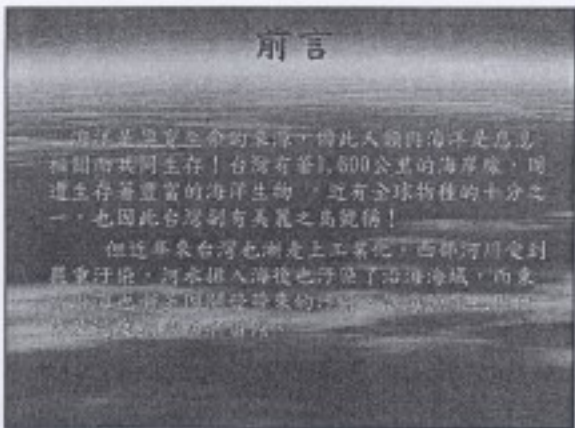 前言
海洋是孕育生命的來源,因此人類與海洋是息息
相關而共同生存!台灣有著1,600公里的海岸線,周
遭生存著豐富的海洋生物,近有全球物種的十分之
一,也因此台灣副有美麗之島號稱!
但近年來台灣也漸走上工業化,西部河川受到
嚴重汙染,河水排入海後也汙染了沿海海域,而東